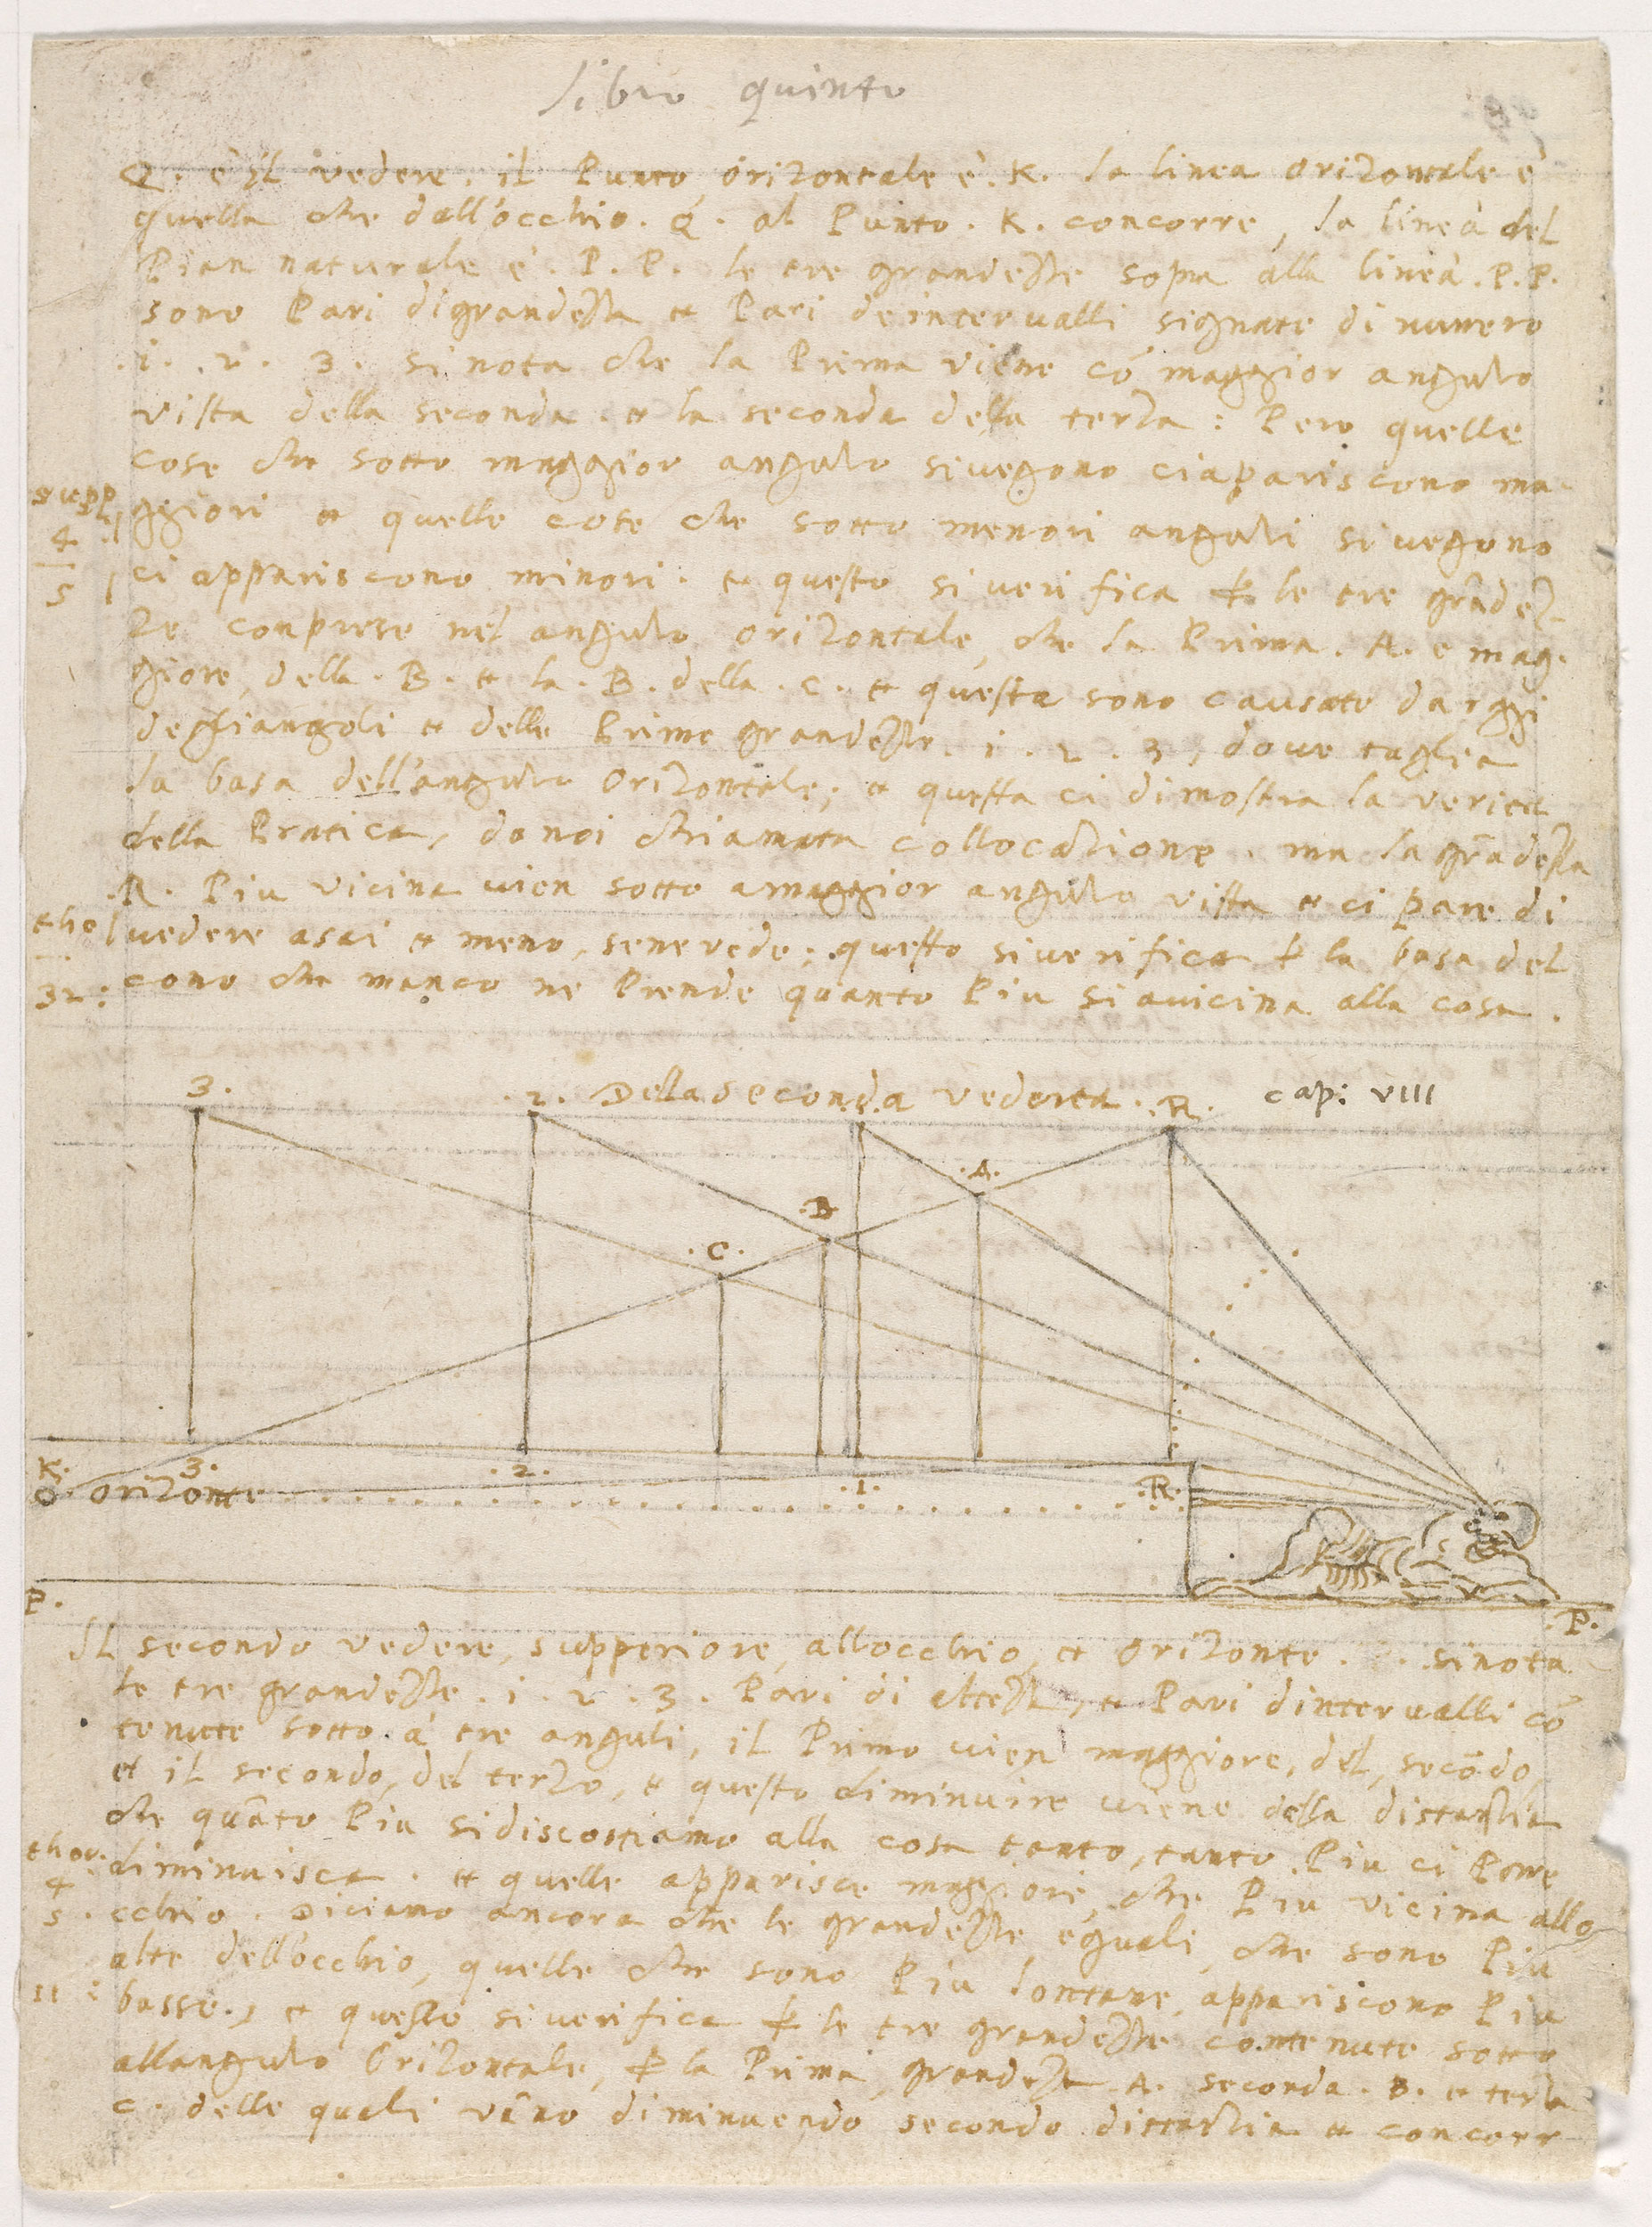 libro quinto
Q. è il vedere. il Punto orizontale è. K. la linea orizontale è
quella che dall'occhio. Q. al Punto. K. concorre, la linea del
Pian naturale è. P. P. le tre grandezze sopra alla linea. P. P.
sono Pari di grandezza et Pari de intervalli signate di numero
.i. .2. 3. si nota che la Prima viene cō maggior angulo
vista della seconda. et la seconda della terza: Pero quelle
cose che sotto maggior angulo si vegono ci apariscono ma
supp. ggiori et quelle cose che sotto menori anguli si vegono
4
5 ci appariscono minori. et questo si verifica ꝑ le tre grādez
ze conprese nel angulo orizontale, che la Prima. A. e mag.
giore, della. B. et la. B. della. C. et questa sono causate da rggi
degliangoli et delle Prime grandezze. i. 2. 3, dove taglia
la basa dell'angulo Orizontale; et questa ci dimostra la verita
della Pratica, da noi chiamata collocazione. ma la grādezza
.R. Piu vicina vien sotto a maggior angulo vista et ci pare di
the vedere asai et meno, sene vede; questo si verifica ꝑ la basa del
32: cono che manco ne Prende quanto Piu si avicina alla cosa.
Della seconda veduta. cap: VIII
3. .2. .i. .R.
.A.
.B.
.C.
K. 3. .2. .1. .R.
O orizonte
P. .P.
Il secondo vedere, supperiore, allocchio, et Orizonte. si nota
le tre grandezze. i. 2. 3. Pari di altezza, et Pari d intervalli cō
tenute sotto à tre anguli, il Primo vien maggiore, del, secōdo,
et il secondo, del terzo, et questo diminuire viene della distanzia
che quāto Piu si discostiamo alla cosa tanto, tanto Piu ci Pare
theor: diminuisca. et quelle apparisce maggiori, che Piu vicina allo
4
5. cchio. Diciamo ancora che le grandezze eguali, che sono Piu
alte dell'occhio, quelle che sono Piu lontane, appariscono Piu
11: basse, et questo si verifica ꝑ le tre grandezze contenute sotto
allangulo Orizontale, ꝑ la Prima, grandezza A. seconda. B. et terza
C. delle quali vāno diminuendo secondo distanzia et concorr